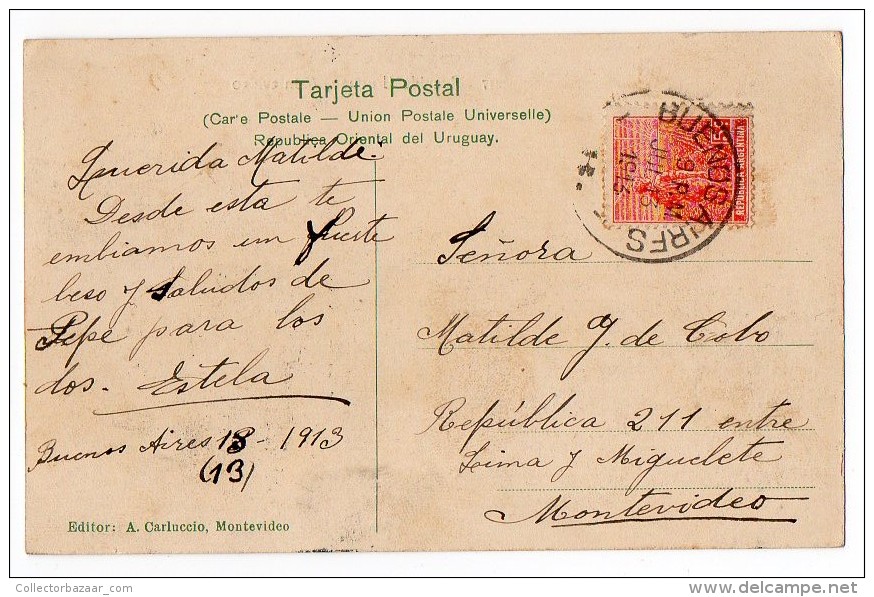 Tarjeta Postal
(Car'e Postale — Union Postale Universelle)
Republica Oriental del Uruguay.
Querida Matilde:
Desde esta te
embiamos un fuerte
beso y saludos de
Pepe para los
dos. Estela
Buenos Aires 18 - 1913
(13)
Editor: A. Carluccio, Montevideo
5
REPUBLICA ARGENTINA
BUENOS AIRES
9 P.M
1913
Señora
Matilde Y. de Cobo
República 211 entre
Lima y Miguelete
Montevideo
Collectorbazaar_com
delcampe.net